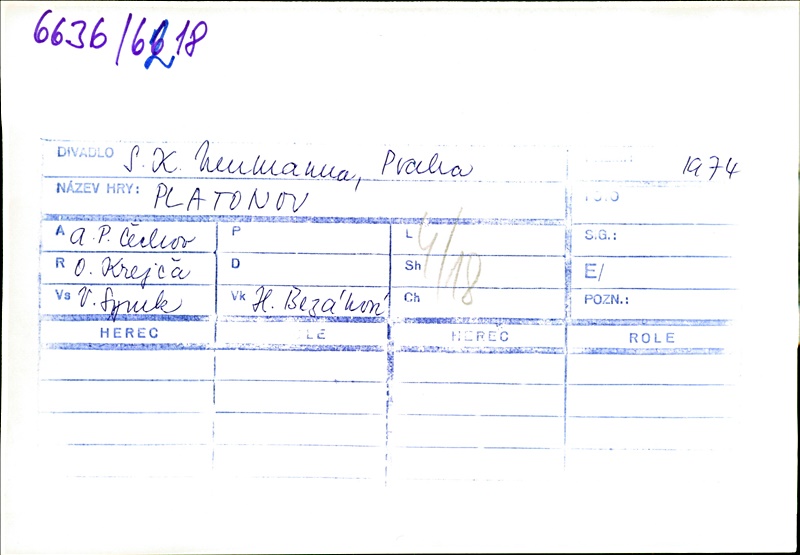 6636/6218
DIVADLO S. K. Neumanna, Praha 1974
NÁZEV HRY: PLATONOV FOTO
A A. P. Čechov P L S.G.:
R O. Krejča D Sh E/
4/18
Vs V. Synek Vk H. Bezáková Ch POZN.:
HEREC LE HEREC ROLE